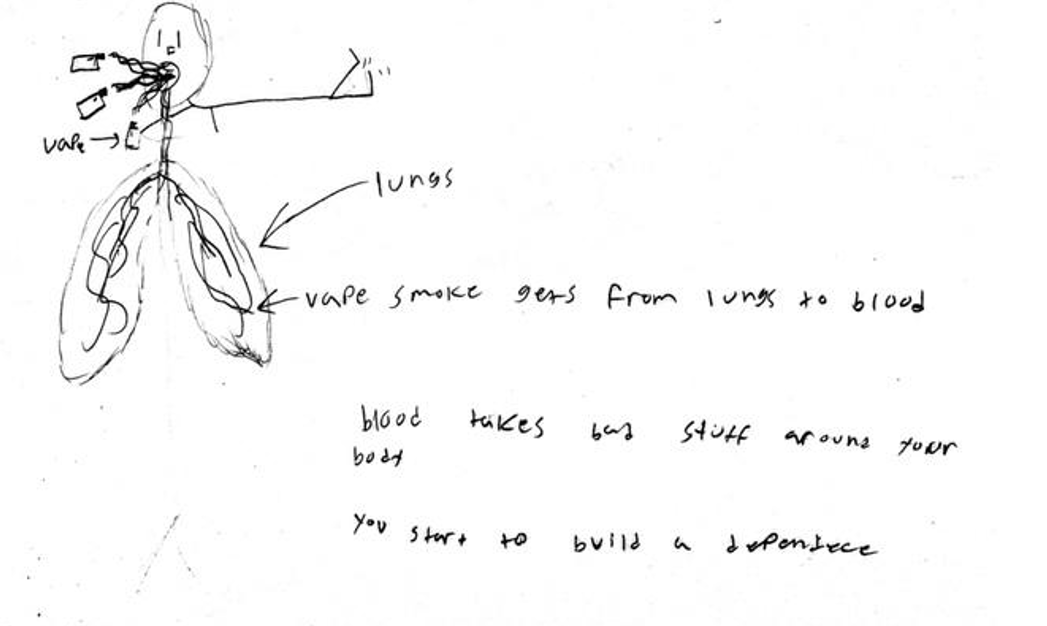 vape
lungs
vape smoke gets from lungs to blood
blood takes bad stuff around your
body
you start to build a dependece